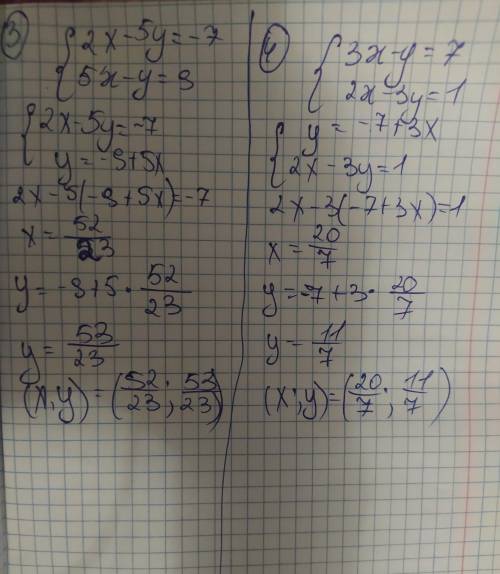 3
2x-5y=-7
5x-y=9
2x-5y=-7
y=-9+5x
2x-5(-9+5x)=-7
x=52/23
y=-9+5·52/23
y=53/23
(x;y)=(52/23;53/23)
4
3x-y=7
2x-3y=1
y=-7+3x
2x-3y=1
2x-3(-7+3x)=1
x=20/7
y=-7+3·20/7
y=11/7
(x;y)=(20/7;11/7)